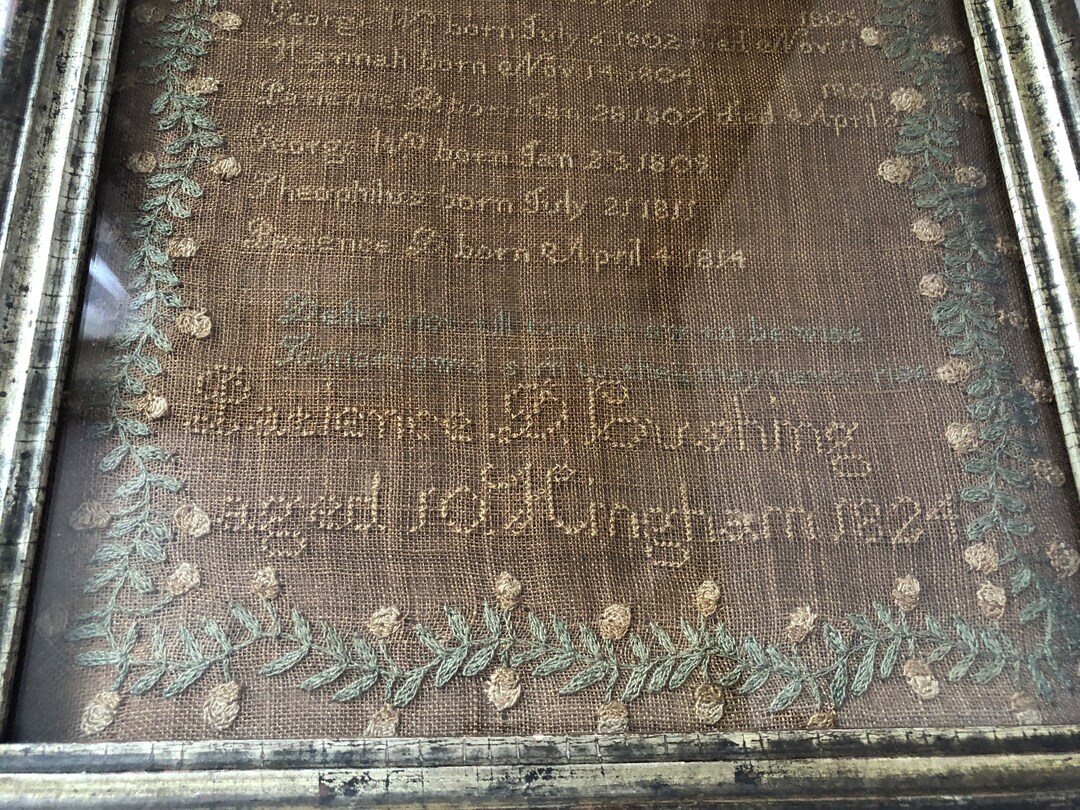 1803
George W born July 4 1802 died Nov 11
Hannah born Nov 14 1804
1808
Patience born Jan 28 1807 died April
George W born Jan 23 1809
Theophilus born July 21 1811
Patience P born April 4 1814
to be wise
may never
Patience P Cushing
aged 10 Hingham 1824